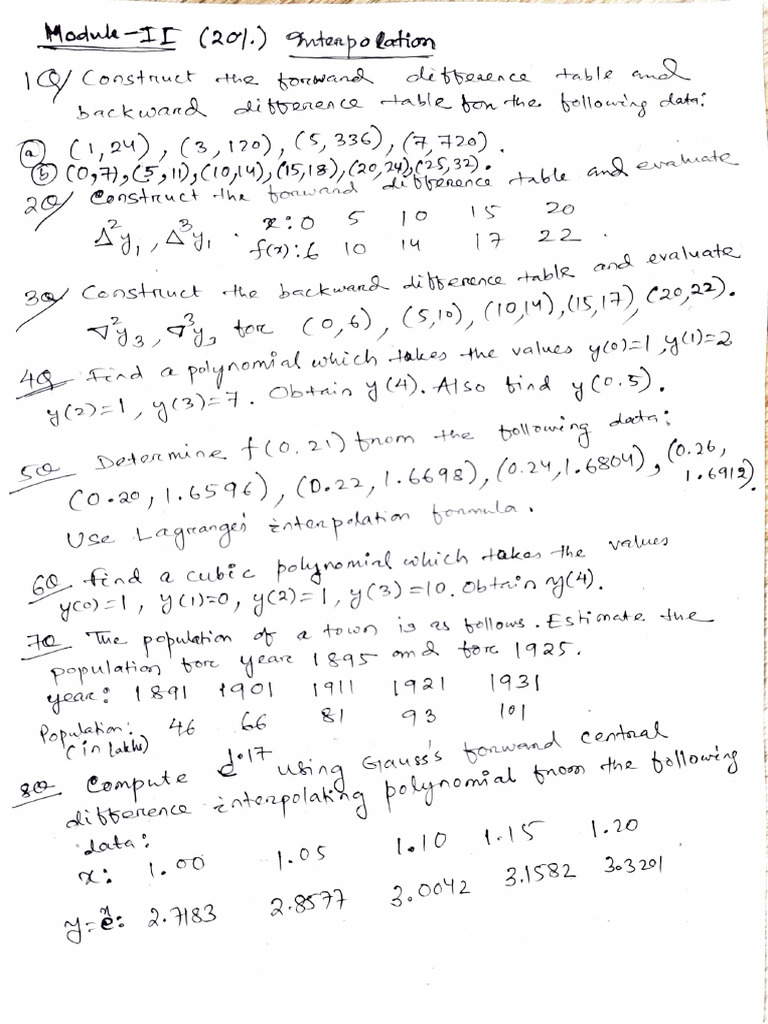 Module-II (20%) Interpolation
1Q/ Construct the forward difference table and
backward difference table for the following data:
(a) (1,24), (3,120), (5,336), (7,720).
(b) (0,7), (5,11), (10,14), (15,18), (20,24), (25,32).
2Q/ Construct the forward difference table and evaluate
Δ²y₁, Δ³y₁. x: 0 5 10 15 20
f(x): 6 10 14 17 22.
3Q/ Construct the backward difference table and evaluate
∇²y₃, ∇³y₃ for (0,6), (5,10), (10,14), (15,17), (20,22).
4Q Find a polynomial which takes the values y(0)=1, y(1)=2
y(2)=1, y(3)=7. Obtain y(4). Also find y(0.5).
5Q Determine f(0.21) from the following data:
(0.20, 1.6596), (0.22, 1.6698), (0.24, 1.6804), (0.26,
1.6912).
Use Lagrange's interpolation formula.
6Q Find a cubic polynomial which takes the values
y(0)=1, y(1)=0, y(2)=1, y(3)=10. Obtain y(4).
7Q The population of a town is as follows. Estimate the
population for year 1895 and for 1925.
year: 1891 1901 1911 1921 1931
Population: 46 66 81 93 101
(in lakhs)
8Q Compute using Gauss's forward central
difference interpolating polynomial from the following
data:
x: 1.00 1.05 1.10 1.15 1.20
y=eˣ: 2.7183 2.8577 3.0042 3.1582 3.3201